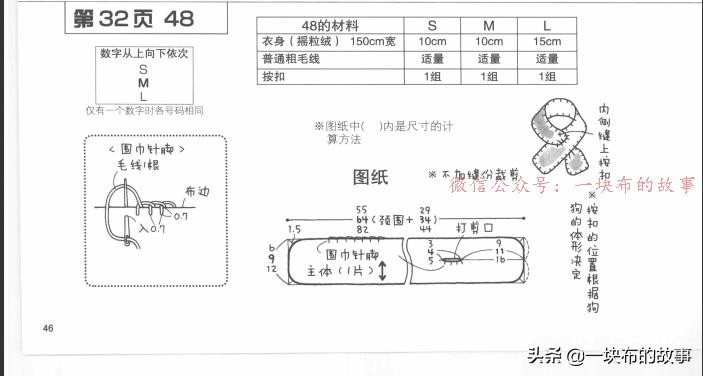 第32页 48
数字从上向下依次
S
M
L
仅有一个数字时各号码相同
48的材料 S M L
衣身（摇粒绒） 150cm宽 10cm 10cm 15cm
普通粗毛线 适量 适量 适量
按扣 1组 1组 1组
＜围巾针脚＞
毛线1根
布边
0.7
入0.7
※图纸中( )内是尺寸的计
算方法
图纸
※不加缝份裁剪
内侧缝上按扣
※按扣的位置根据狗
狗的体形决定
微信公众号：一块布的故事
55
64
82
(颈围+
29
34)
44
1.5
6
9
12
围巾针脚
主体(1片)
打剪口
3
4
5
9
11
16
46
头条 @一块布的故事